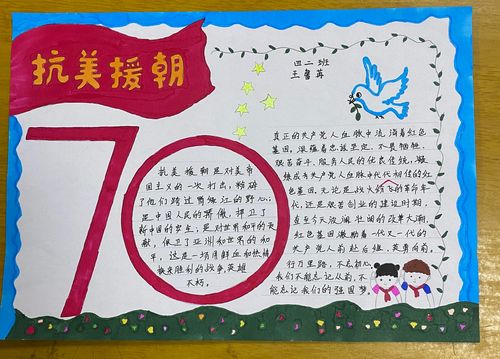 抗美援朝
70
四二班
王
抗美援朝是对美帝
国主义的一次打击，粉碎
了他们跨过鸭绿江的野心，
是中国人民的骄傲，捍卫了
新中国的安全，是对世界和平的贡
献，保卫了亚洲和世界的和
平，这是一场用鲜血和热情
换来胜利的战争，英雄
不朽。
真正的共产党人血脉中流淌着红色
基因，深蕴着忠诚坚定、不畏牺牲、
艰苦奋斗、服务人民的优良传统，凝
炼成为共产党人血脉中代代相传的红
色基因，无论是战火纷飞的革命年
代，还是艰苦创业的建设时期，
直至今天波澜壮阔的改革大潮，
红色基因激励着一代又一代的
共产党人前赴后继，英勇向前。
行万里路，不忘初心。
我们不能忘记从前，不
能忘记我们的强国梦。